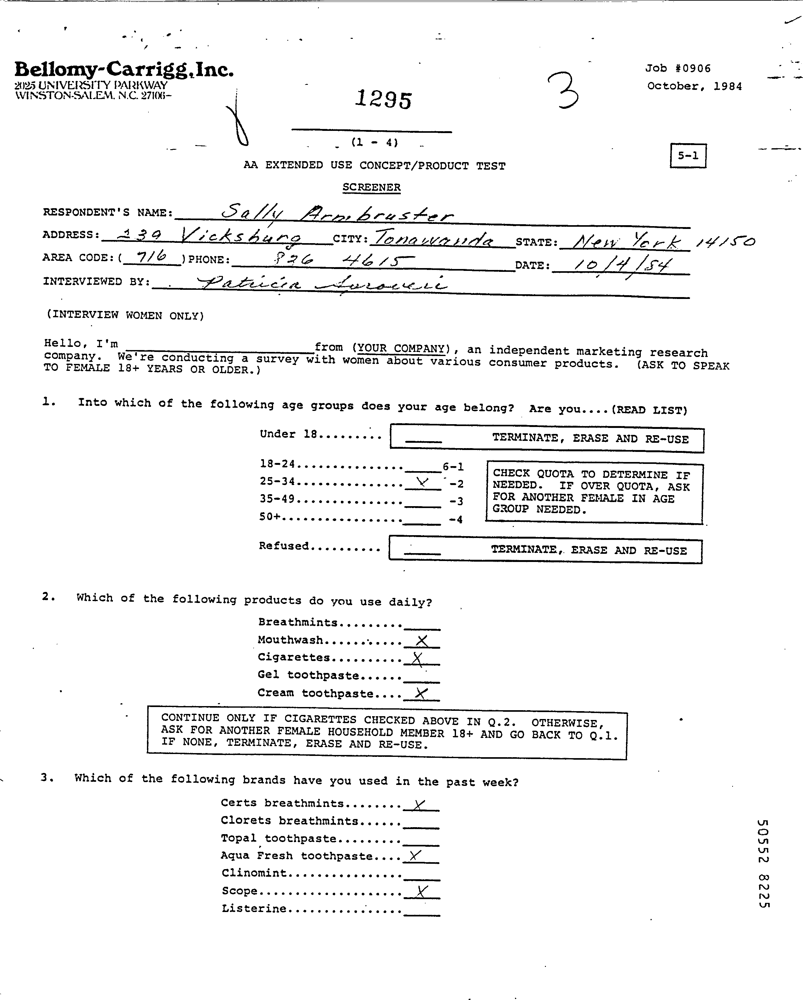 Bellomy-Carrigg, Inc.
2025 UNIVERSITY PARKWAY
WINSTON-SALEM, N.C. 27106-
1295
3
Job #0906
October, 1984
(1 - 4)
5-1
AA EXTENDED USE CONCEPT/PRODUCT TEST
SCREENER
RESPONDENT'S NAME: Sally Armbruster
ADDRESS: 239 Vicksburg CITY: Tonawanda STATE: New York 14150
AREA CODE: ( 716 ) PHONE: 826 4615 DATE: 10/4/84
INTERVIEWED BY: Patricia
(INTERVIEW WOMEN ONLY)
Hello, I'm ____ from (YOUR COMPANY), an independent marketing research
company. We're conducting a survey with women about various consumer products. (ASK TO SPEAK
TO FEMALE 18+ YEARS OR OLDER.)
1. Into which of the following age groups does your age belong? Are you....(READ LIST)
Under 18......... ____ TERMINATE, ERASE AND RE-USE
18-24............... ____ 6-1
25-34............... ✓ -2
35-49............... ____ -3
50+................. ____ -4
CHECK QUOTA TO DETERMINE IF
NEEDED. IF OVER QUOTA, ASK
FOR ANOTHER FEMALE IN AGE
GROUP NEEDED.
Refused.......... ____ TERMINATE, ERASE AND RE-USE
2. Which of the following products do you use daily?
Breathmints......... ____
Mouthwash........... X
Cigarettes.......... X
Gel toothpaste...... ____
Cream toothpaste.... X
CONTINUE ONLY IF CIGARETTES CHECKED ABOVE IN Q.2. OTHERWISE,
ASK FOR ANOTHER FEMALE HOUSEHOLD MEMBER 18+ AND GO BACK TO Q.1.
IF NONE, TERMINATE, ERASE AND RE-USE.
3. Which of the following brands have you used in the past week?
Certs breathmints........ X
Clorets breathmints...... ____
Topal toothpaste......... ____
Aqua Fresh toothpaste.... X
Clinomint................ ____
Scope.................... X
Listerine................ ____
50552 8225